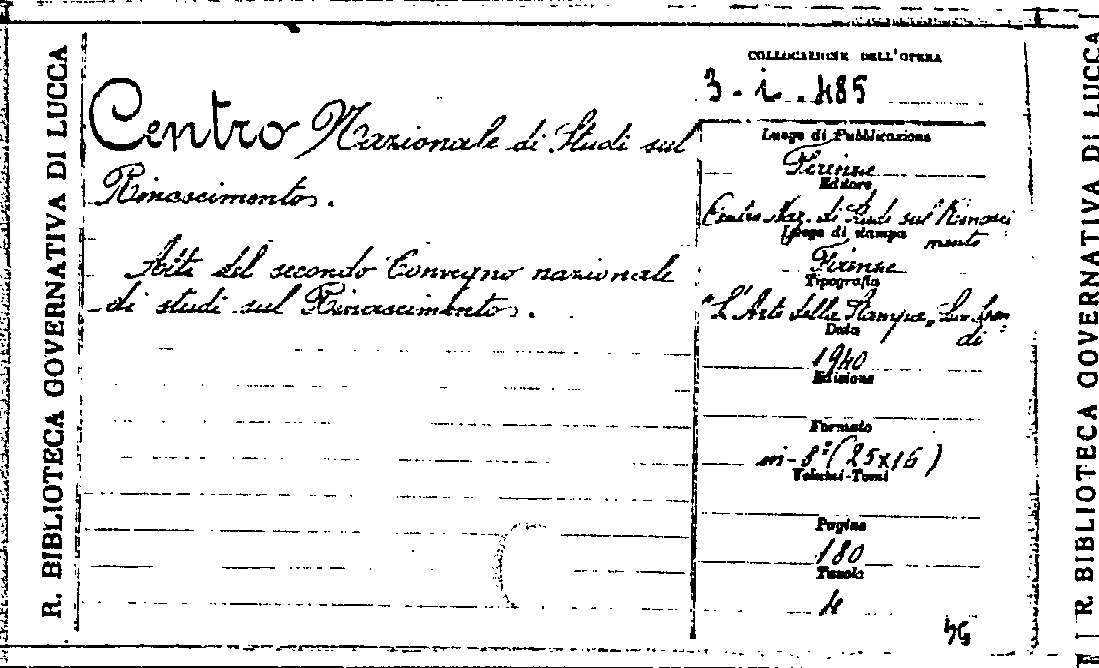 R. BIBLIOTECA GOVERNATIVA DI LUCCA
Centro Nazionale di Studi sul
Rinascimento.
Atti del secondo Convegno nazionale
di studi sul Rinascimento.
COLLOCAZIONE DELL'OPERA
3 - i . 485
Luogo di Pubblicazione
Firenze
Editore
Centro Naz. di Studi sul Rinasci
mento
Luogo di stampa
Firenze
Tipografia
"L'Arte della Stampa"
Data
1940
Edizione
Formato
in-8° (25x16)
Volumi-Tomi
Pagine
180
Tavole
4
R. BIBLIOTECA GOVERNATIVA DI LUCCA